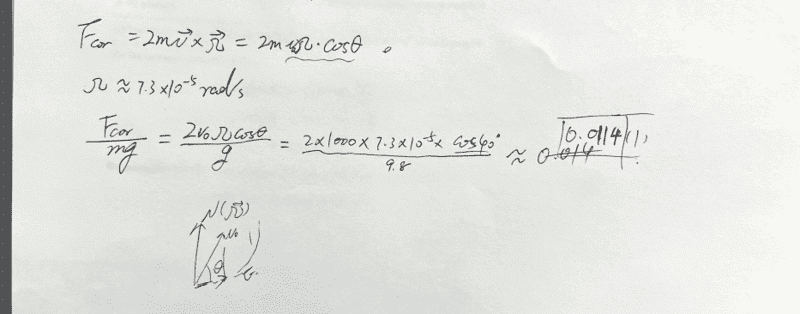 F_cor = 2m v⃗ × Ω⃗ = 2m v₀Ω · cosθ 。
Ω ≈ 7.3×10⁻⁵ rad/s
F_cor/mg = 2v₀Ωcosθ/g = 2×1000×7.3×10⁻⁵×cos40°/9.8 ≈ 0.0114
N(Ω⃗)
v₀
θ